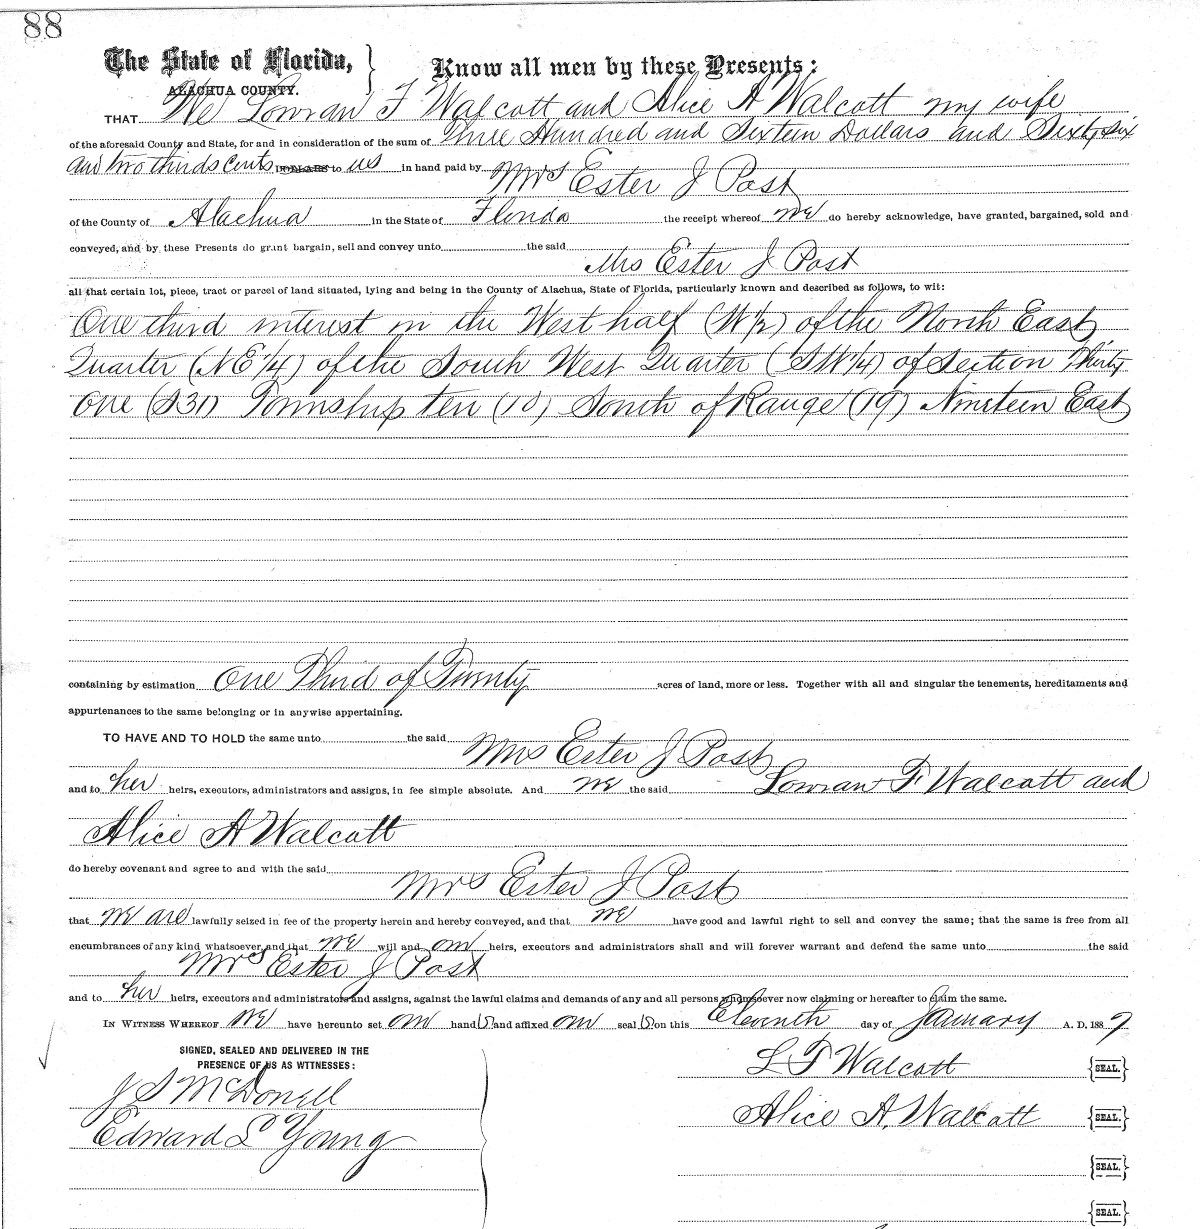 88
The State of Florida, } Know all men by these Presents:
ALACHUA COUNTY.
THAT We Lowran F Walcott and Alice A Walcott my wife
of the aforesaid County and State, for and in consideration of the sum of Three Hundred and Sixteen Dollars and Sixty six
and two thirds cents DOLLARS to us in hand paid by
Mrs Ester J Post
of the County of Alachua in the State of Florida the receipt whereof we do hereby acknowledge, have granted, bargained, sold and
conveyed, and by these Presents do grant bargain, sell and convey unto the said
Mrs Ester J Post
all that certain lot, piece, tract or parcel of land situated, lying and being in the County of Alachua, State of Florida, particularly known and described as follows, to wit:
One third interest in the West half (W½) of the North East
Quarter (NE¼) of the South West Quarter (SW¼) of Section Thirty
One (S31) Township ten (10) South of Range (19) Nineteen East
containing by estimation One Third of Twenty acres of land, more or less. Together with all and singular the tenements, hereditaments and
appurtenances to the same belonging or in anywise appertaining.
TO HAVE AND TO HOLD the same unto the said
Mrs Ester J Post
and to her heirs, executors, administrators and assigns, in fee simple absolute. And we the said Lowran F Walcott and
Alice A Walcott
do hereby covenant and agree to and with the said
Mrs Ester J Post
that we are lawfully seized in fee of the property herein and hereby conveyed, and that we have good and lawful right to sell and convey the same; that the same is free from all
encumbrances of any kind whatsoever, and that we will and our heirs, executors and administrators shall and will forever warrant and defend the same unto the said
Mrs Ester J Post
and to her heirs, executors and administrators and assigns, against the lawful claims and demands of any and all persons whomsoever now claiming or hereafter to claim the same.
IN WITNESS WHEREOF we have hereunto set our hand(s) and affixed our seal(s) on this Eleventh day of January A. D. 1887
SIGNED, SEALED AND DELIVERED IN THE
PRESENCE OF US AS WITNESSES:
L F Walcott {SEAL.}
J S McDonell
Alice A. Walcott {SEAL.}
Edward L Young
{SEAL.}
{SEAL.}